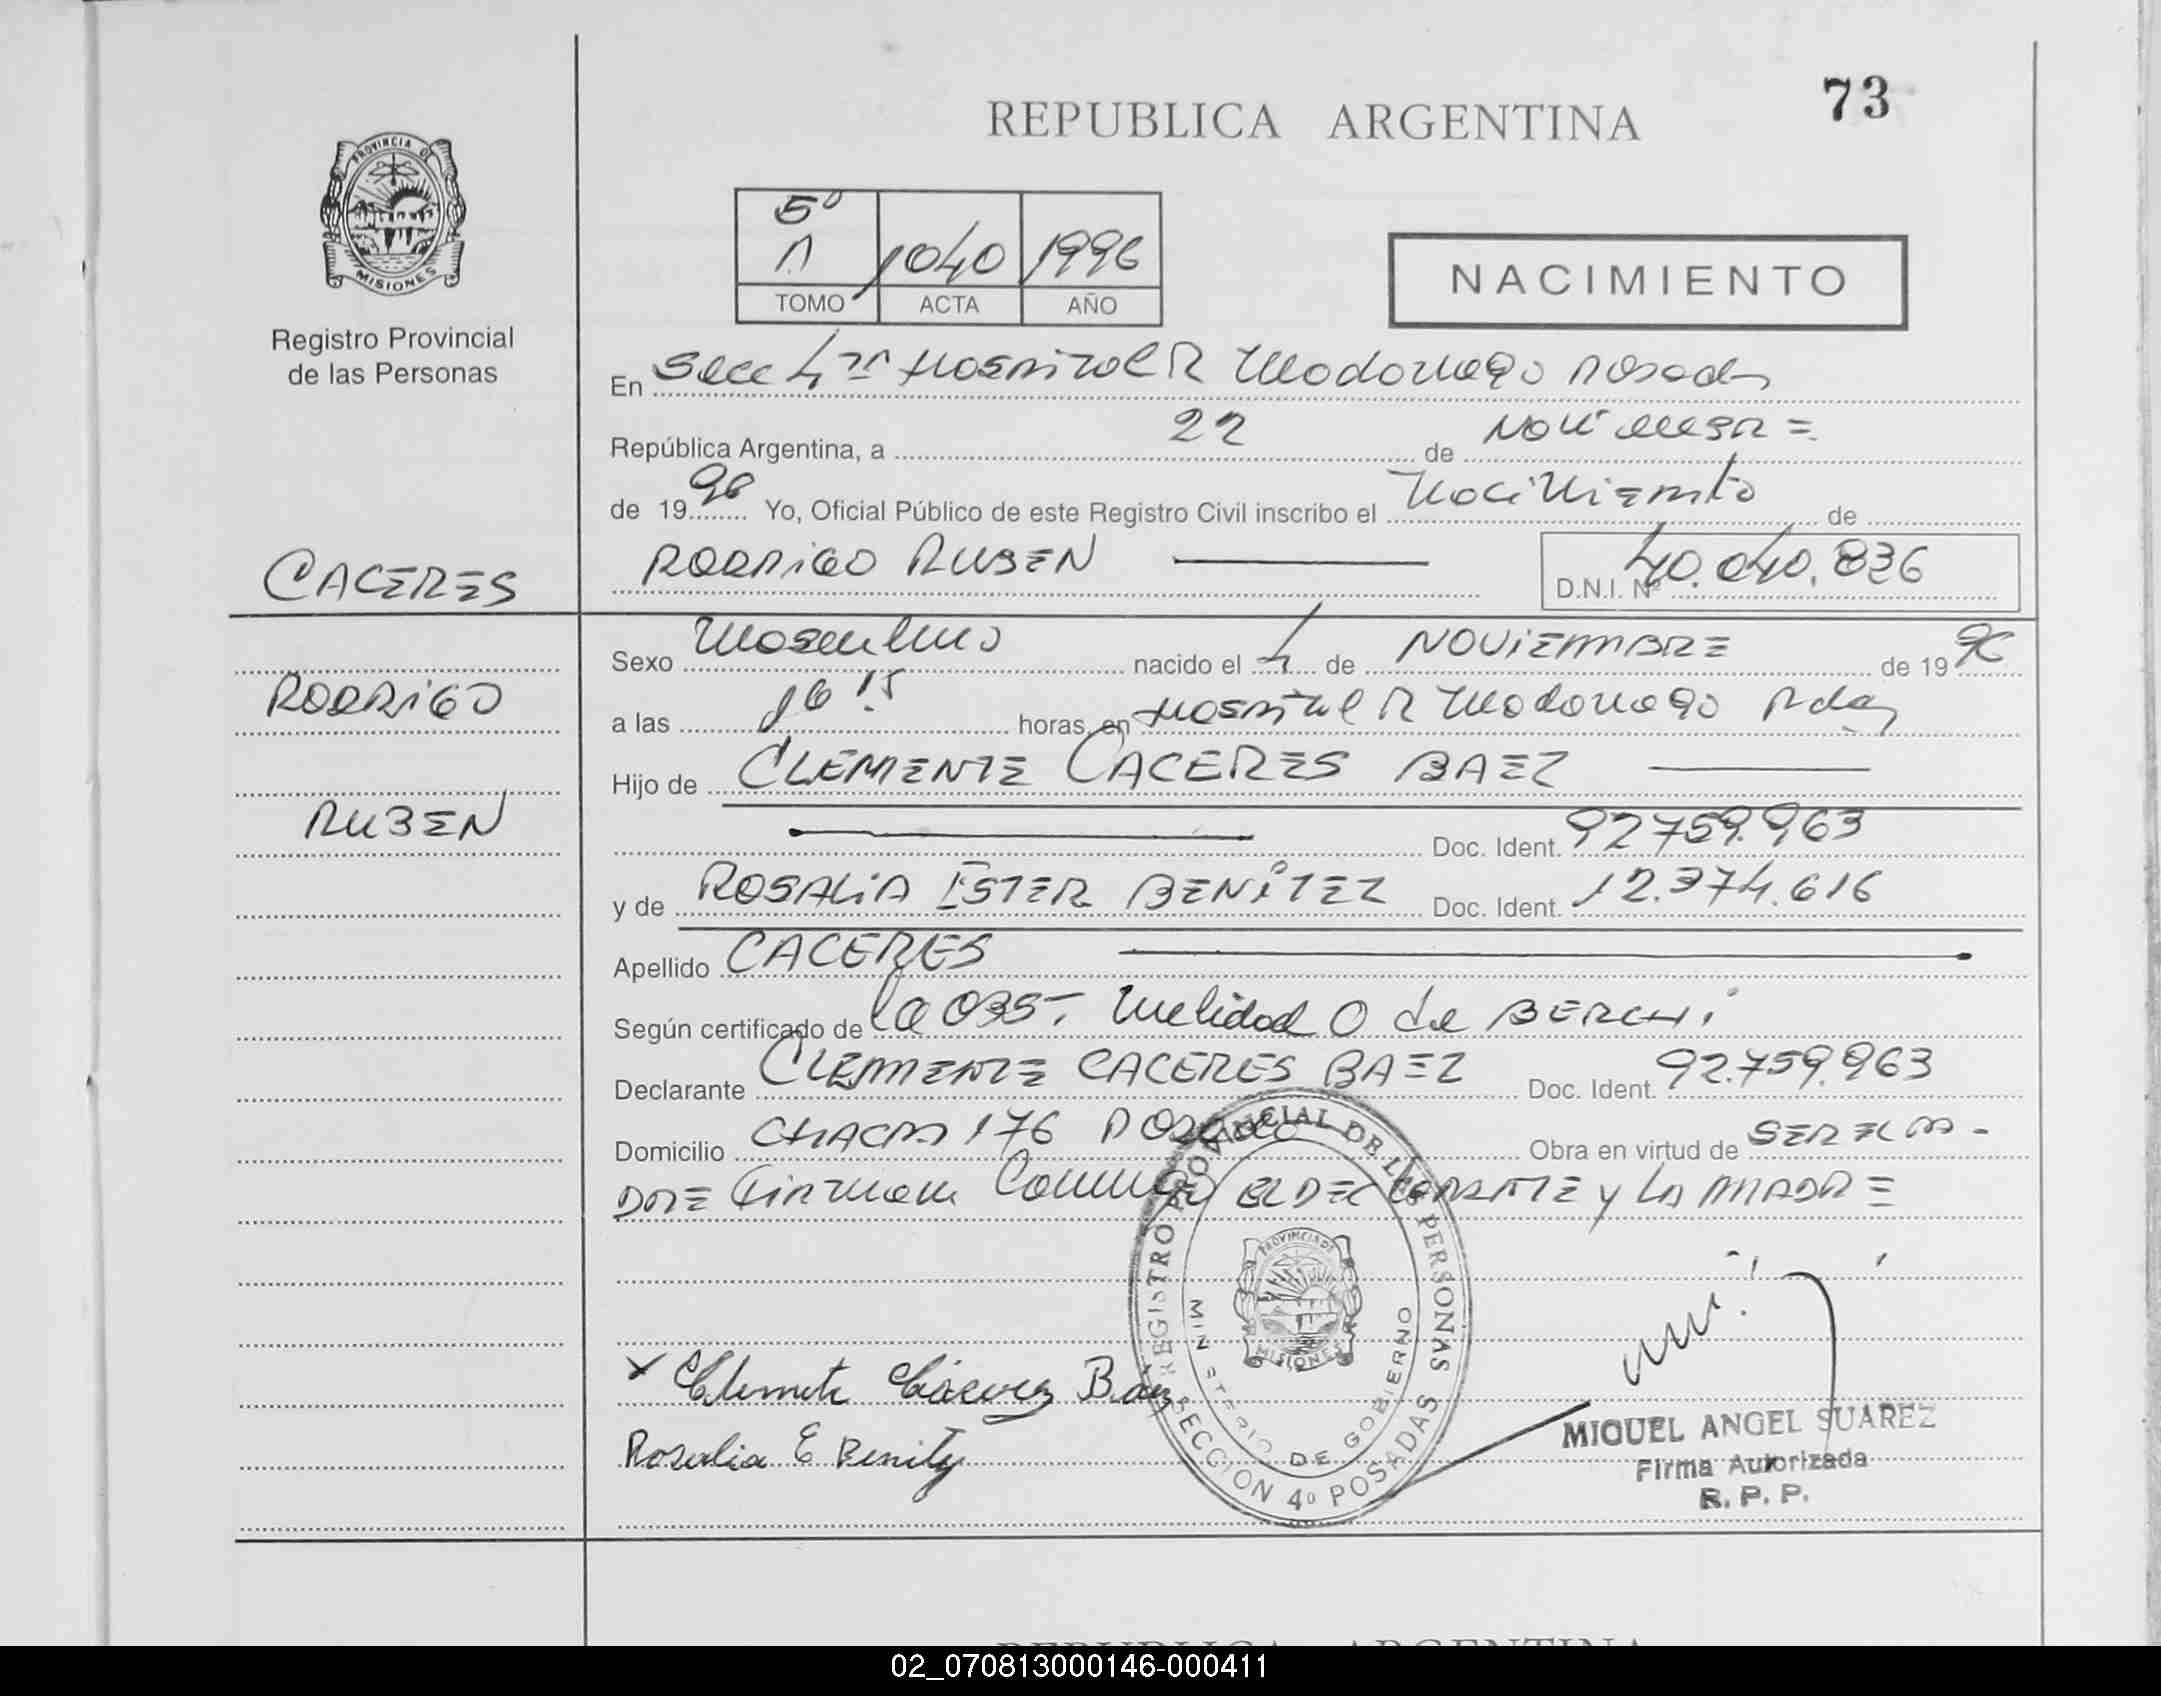 73
REPUBLICA ARGENTINA
PROVINCIA DE
MISIONES
Registro Provincial
de las Personas
5º
1040 1996
TOMO ACTA AÑO
NACIMIENTO
En Secc 4ta Hospital R Madariaga Posadas
República Argentina, a 22 de Noviembre
de 1996 Yo, Oficial Público de este Registro Civil inscribo el Nacimiento de
CACERES
RODRIGO RUBEN D.N.I. Nº 40.040.836
Sexo Masculino nacido el 4 de NOVIEMBRE de 1996
RODRIGO
a las 16 15 horas, en Hospital R Madariaga Pdas
Hijo de CLEMENTE CACERES BAEZ
RUBEN
Doc. Ident. 92.759.963
y de ROSALIA ESTER BENITEZ Doc. Ident. 12.374.616
Apellido CACERES
Según certificado de la OBST. Melidad O de BERCHI
Declarante CLEMENTE CACERES BAEZ Doc. Ident. 92.759.963
Domicilio CHACRA 176 POSADAS Obra en virtud de SER EL PA-
DRE Firman Conmigo EL DECLARANTE y LA MADRE
REGISTRO PROVINCIAL DE LAS PERSONAS
SECCION 4º POSADAS
MINISTERIO DE GOBIERNO
PROVINCIA DE
MISIONES
x Clemente Cáceres Báez
Rosalia E Benitez
MIGUEL ANGEL SUAREZ
Firma Autorizada
R. P. P.
REPUBLICA ARGENTINA
02_070813000146-000411